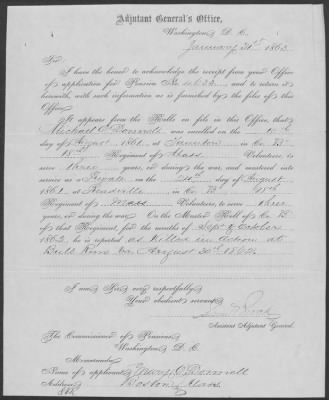 Adjutant General's Office,
Washington, D. C.
January 21st 1863
Sir:
I have the honor to acknowledge the receipt from your Office
of application for Pension No. 4632, and to return it
herewith, with such information as is furnished by the files of this
Office.
It appears from the Rolls on file in this Office, that
Michael O'Donnell was enrolled on the
day of August 1861, at Taunton in Co. B
18th Regiment of Mass Volunteers, to serve
three years, or during the war, and mustered into
service as a Private on the 24th day of August
1861, at Readville in Co. B 18th
Regiment of Mass Volunteers, to serve three
years, or during the war. On the Muster Roll of Co. B
of that Regiment, for the months of Sept & October
1862, he is reported as killed in action at
Bull Run Va August 30th 1862.
I am, Sir, very respectfully,
Your obedient servant,
Assistant Adjutant General.
The Commissioner of Pensions,
Washington, D. C.
Memoranda:
Name of applicant, O'Donnell
Address, Boston, Mass